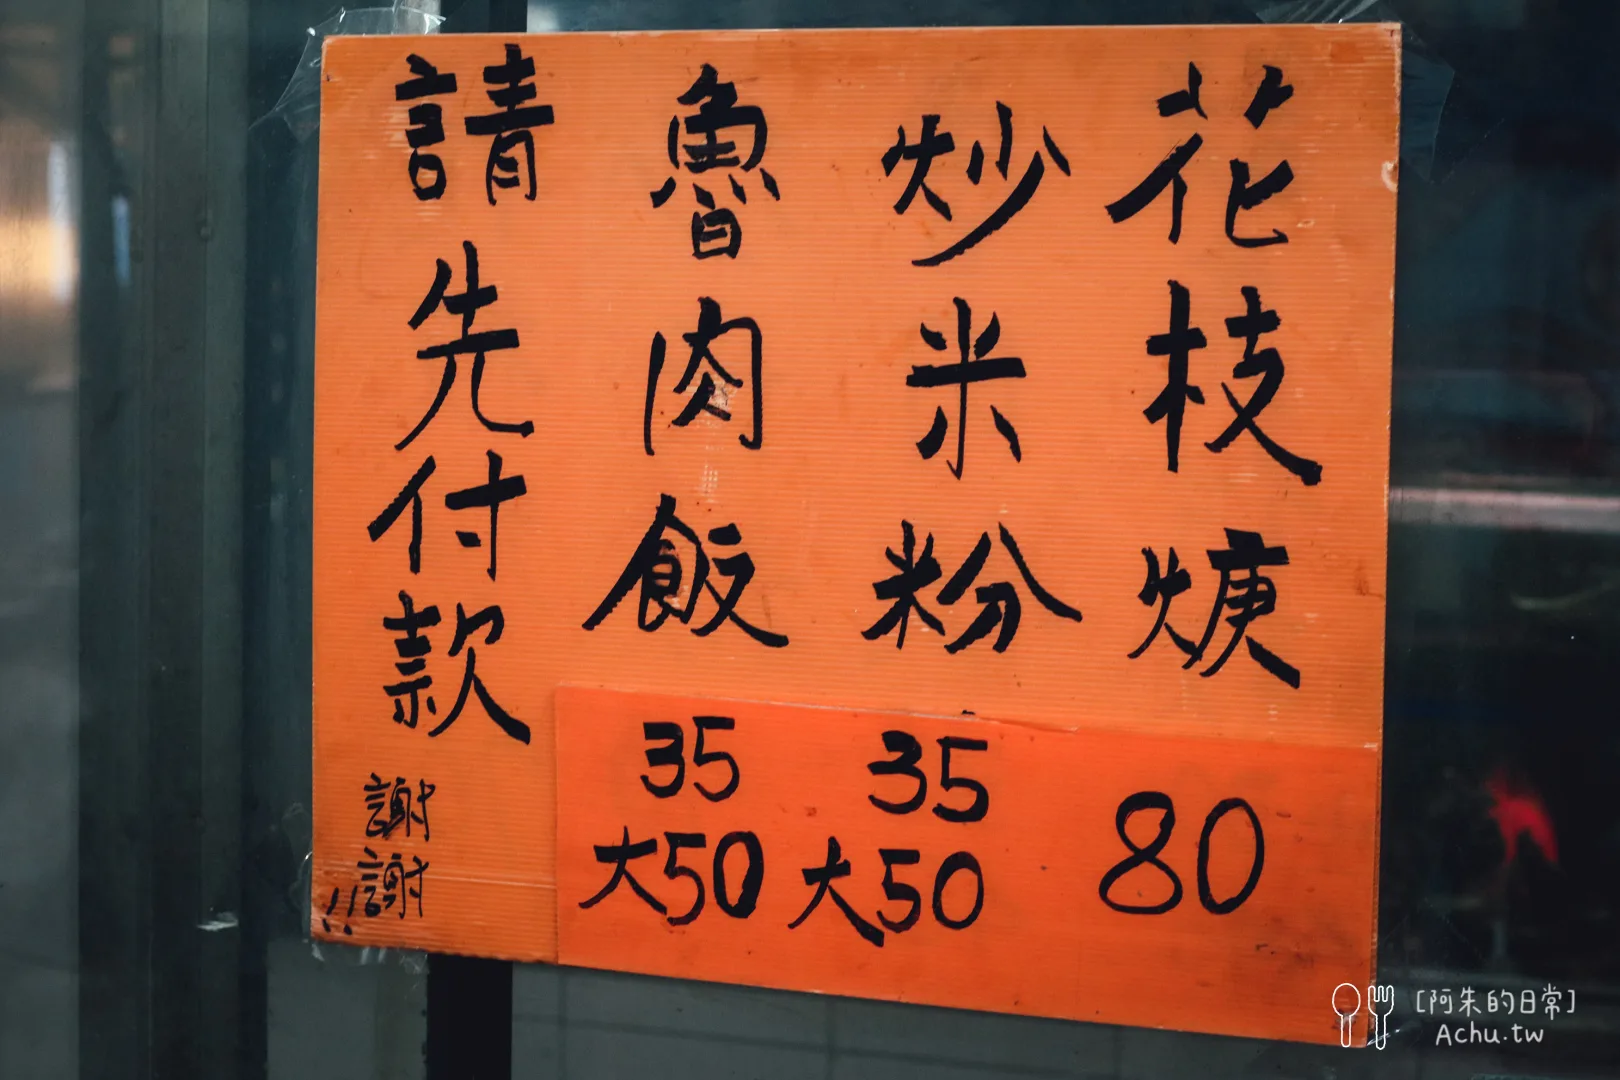 花枝焿
80
炒米粉
35
大50
魯肉飯
35
大50
請先付款
謝謝!!
[阿朱的日常]
Achu.tw